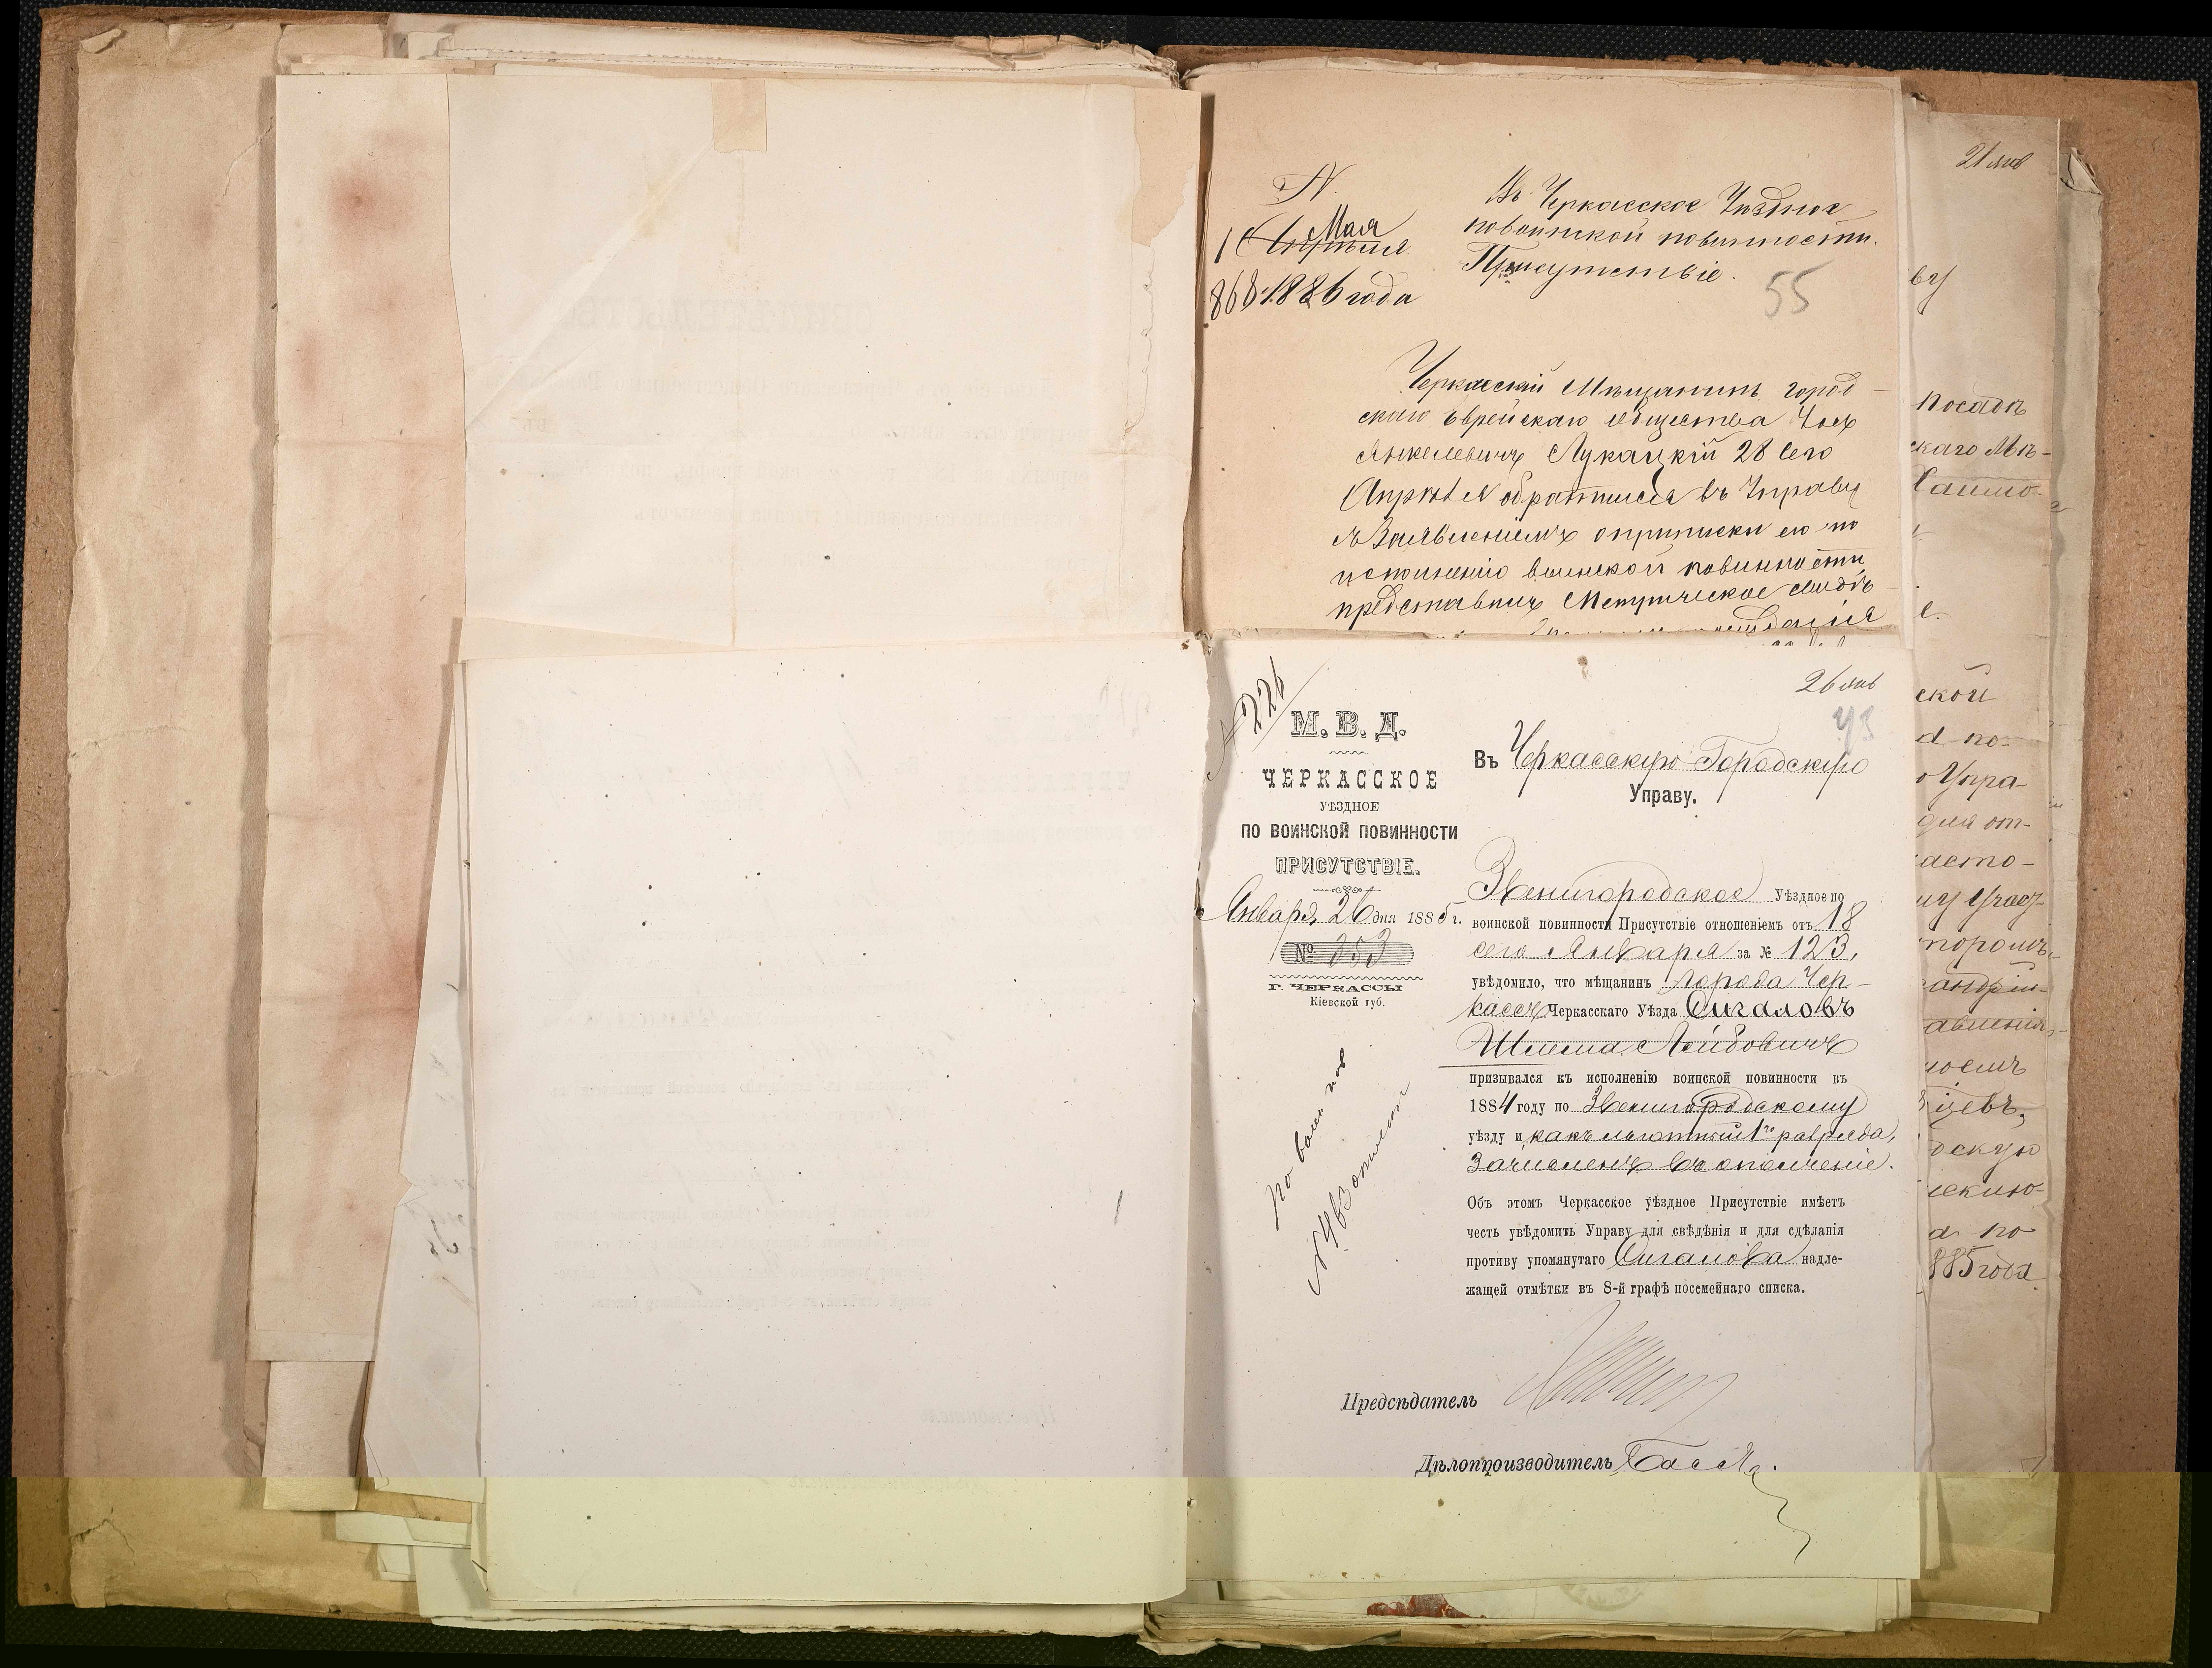 N.
1 Апрѣля Мая
868 1886 года
Въ Черкасское Уѣздное
по воинской повинности
Присутствіе.
55
Черкасскій Мѣщанинъ город-
скаго Еврейскаго общества Іось
Янкелевичъ Лукацкій 28 сего
Апрѣля обратился въ Управу
съ Заявленіемъ о припискѣ его по
исполненію воинской повинности
представилъ Метрическое свидѣ-
226
26 янв
43
М. В. Д.
ЧЕРКАССКОЕ
УѢЗДНОЕ
ПО ВОИНСКОЙ ПОВИННОСТИ
ПРИСУТСТВІЕ.
Января 26 дня 1885 г.
№ 353
Г. ЧЕРКАССЫ
Кіевской губ.
Въ Черкасскую Городскую
Управу.
Звенигородское Уѣздное по
воинской повинности Присутствіе отношеніемъ отъ 18
сего Января за № 123,
увѣдомило, что мѣщанинъ города Чер-
кассъ Черкасскаго Уѣзда Сигаловъ
Шлема Лейбовичъ
призывался къ исполненію воинской повинности въ
1884 году по Звенигородскому
уѣзду и какъ льготный 1го разряда,
зачисленъ въ ополченіе.
Объ этомъ Черкасское уѣздное Присутствіе имѣетъ
честь увѣдомить Управу для свѣдѣнія и для сдѣланія
противу упомянутаго Сигалова надле-
жащей отмѣтки въ 8-й графѣ посемейнаго списка.
Предсѣдатель
Дѣлопроизводитель
21 янв
ву
посадъ
скаго Мѣ-
ской
а по-
Упра-
для от-
насто-
авленія,
оемъ
дскую
а по
885 года